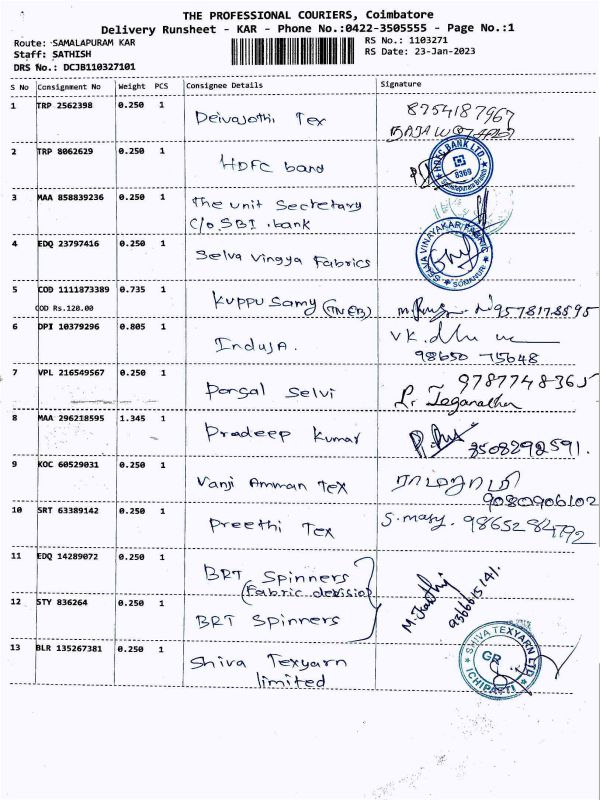 THE PROFESSIONAL COURIERS, Coimbatore
Delivery Runsheet - KAR - Phone No.:0422-3505555 - Page No.:1
Route: SAMALAPURAM KAR
RS No.: 1103271
Staff: SATHISH
RS Date: 23-Jan-2023
DRS No.: DCJB110327101
S No Consignment No Weight PCS Consignee Details Signature
1 TRP 2562398 0.250 1 Deivajothi Tex 8754187967
2 TRP 8062629 0.250 1 HDFC band HDFC BANK LTD. 6369 Samalapuram Branch
3 MAA 858839236 0.250 1 The unit Secretary
C/o.SBI .bank
4 EDQ 23797416 0.250 1 Selva Vingya Fabrics SELVA VINAYAKAR FABRIC SOMANUR
5 COD 1111873389 0.735 1 Kuppu Samy (TNEB) 9578178595
COD Rs.120.00
6 DPI 10379296 0.805 1 InduJA.
98650 75648
7 VPL 216549567 0.250 1 Pongal Selvi 9787748365
P. Jeganathan
8 MAA 296218595 1.345 1 Pradeep Kumar 9508292591.
9 KOC 60529031 0.250 1 Vanji Amman Tex ராமஜாமி
9080906102
10 SRT 63389142 0.250 1 Preethi Tex S.mary. 9865284792
11 EDQ 14289072 0.250 1 BRT Spinners
(Fabric devision)
12 STY 836264 0.250 1 BRT Spinners 9366615141.
13 BLR 135267381 0.250 1 Shiva Texyarn
limited SHIVA TEXYARN LTD ICHIPATTI GR